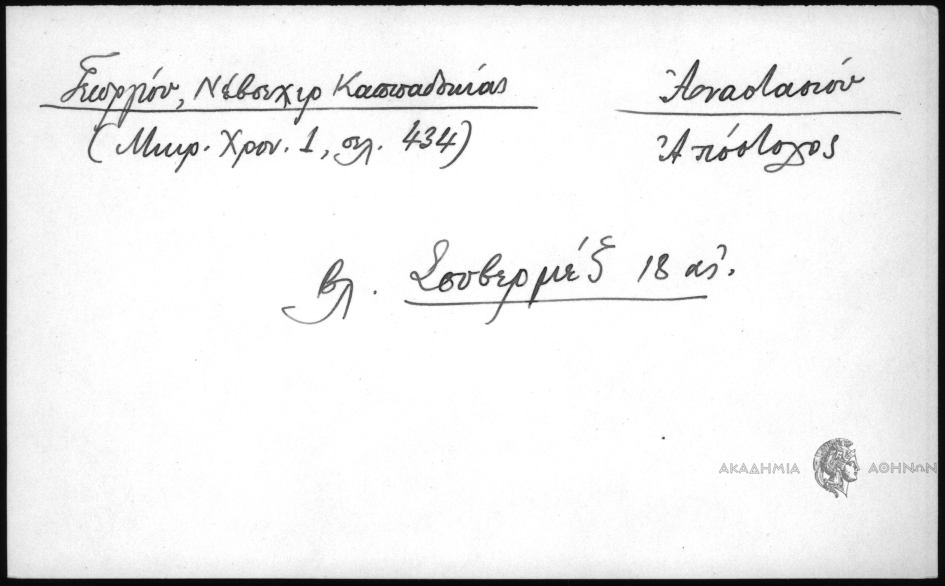 Γεωργίου, Νέβσεχιρ Καππαδοκίας
(Μικρ. Χρον. 1, σελ. 434)
Ἀναστασίου
Ἀπόστολος
βλ. Σουβερμέζ 18 αἰ.
ΑΚΑΔΗΜΙΑ ΑΘΗΝΩΝ